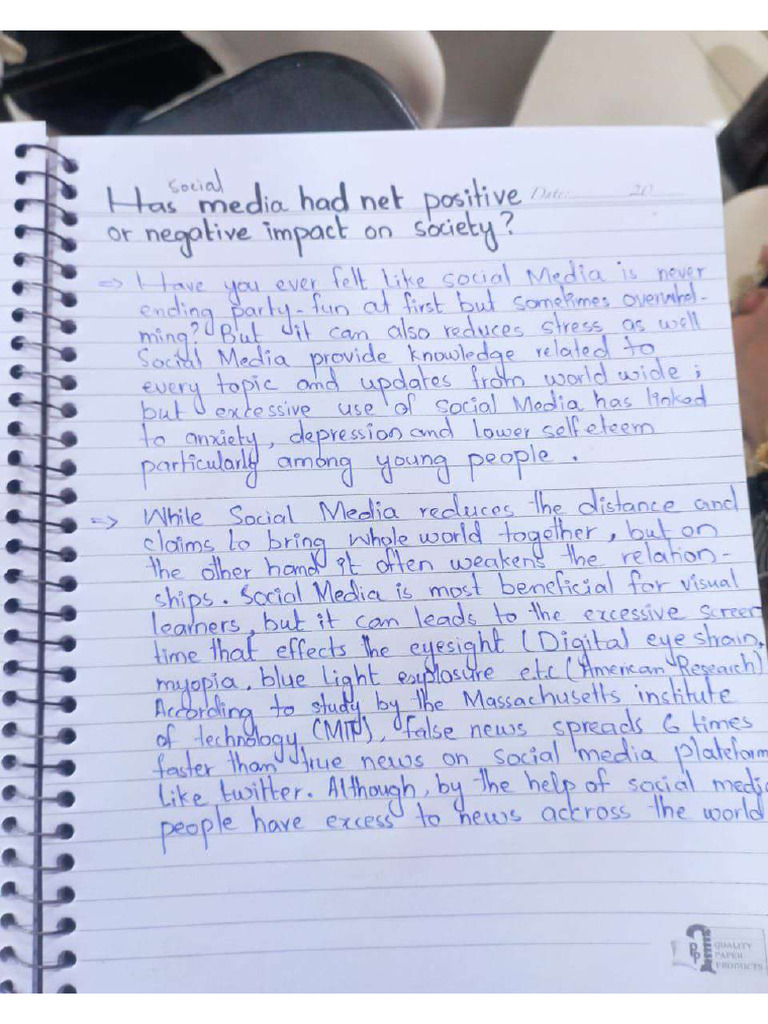 Social
Has media had net positive
Date: 20
or negative impact on society?
=> Have you ever felt like social Media is never
ending party - fun at first but sometimes overwhel-
ming? But it can also reduces stress as well
Social Media provide knowledge related to
every topic and updates from world wide ;
but excessive use of social Media has linked
to anxiety, depression and lower self eteem
particularly among young people .
=> While Social Media reduces the distance and
claims to bring whole world together, but on
the other hand it often weakens the relation-
ships. Social Media is most beneficial for visual
learners, but it can leads to the excessive screen
time that effects the eyesight (Digital eye shain,
myopia, blue light explosure etc (American Research)
According to study by the Massachusetts institute
of technology (MIT), false news spreads 6 times
faster than true news on social media plateform
like twitter. Although, by the help of social media
people have excess to news accross the world
PP
QUALITY
PAPER
PRODUCTS